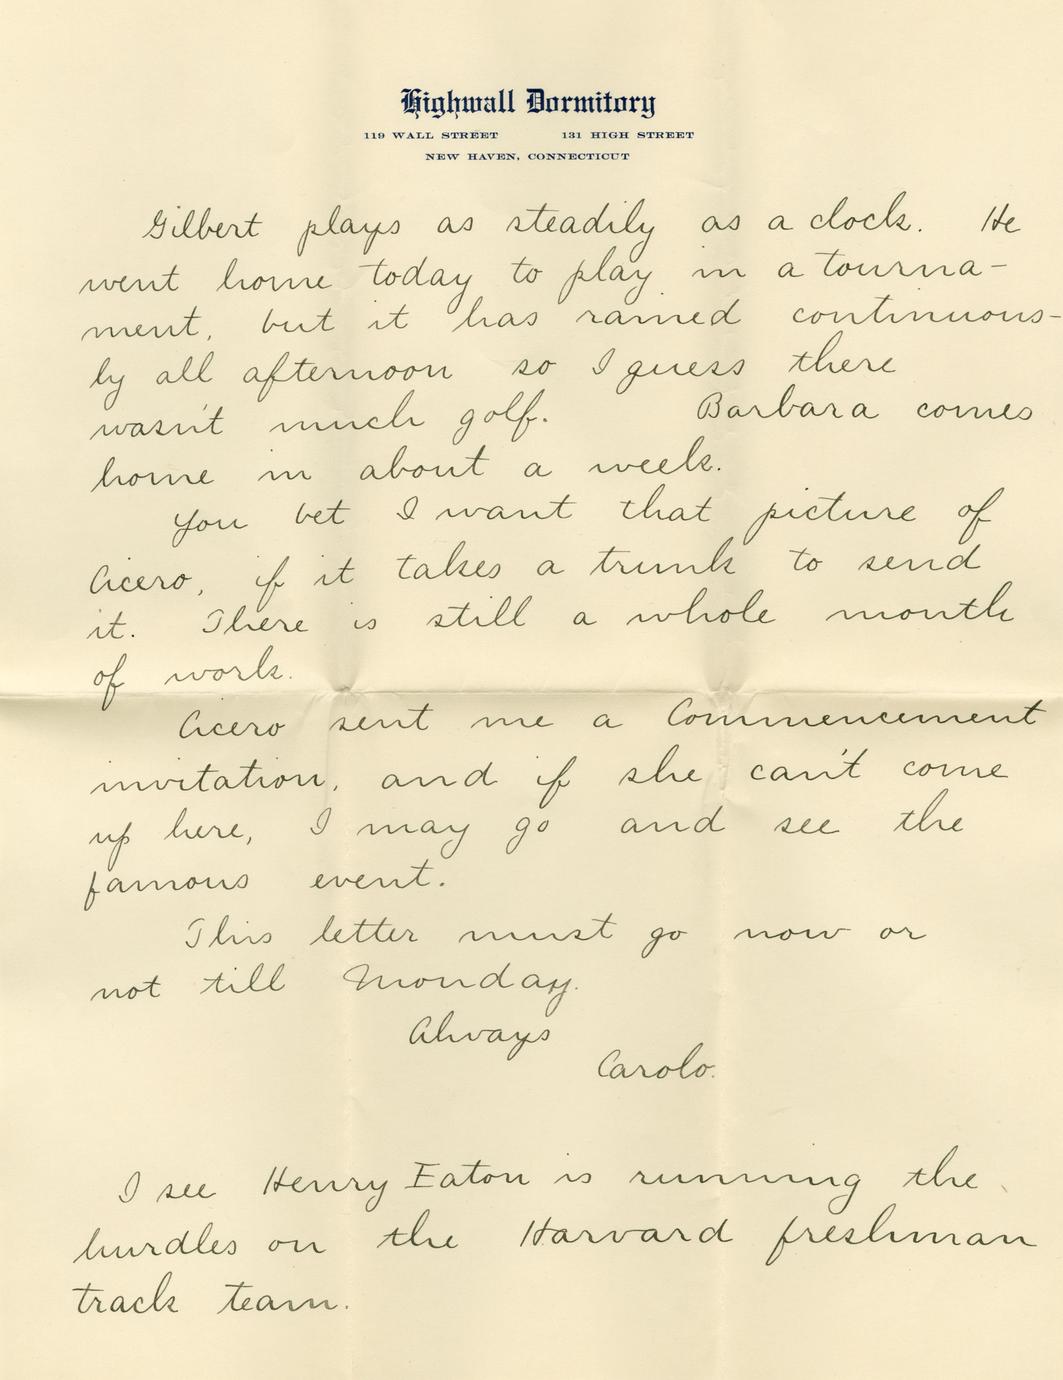 Highwall Dormitory
119 WALL STREET 131 HIGH STREET
NEW HAVEN, CONNECTICUT
Gilbert plays as steadily as a clock. He
went home today to play in a tourna-
ment, but it has rained continuous-
ly all afternoon so I guess there
wasn't much golf. Barbara comes
home in about a week.
You bet I want that picture of
Cicero, if it takes a trunk to send
it. There is still a whole month
of work.
Cicero sent me a Commencement
invitation, and if she can't come
up here, I may go and see the
famous event.
This letter must go now or
not till Monday.
Always
Carolo.
I see Henry Eaton is running the
hurdles on the Harvard freshman
track team.